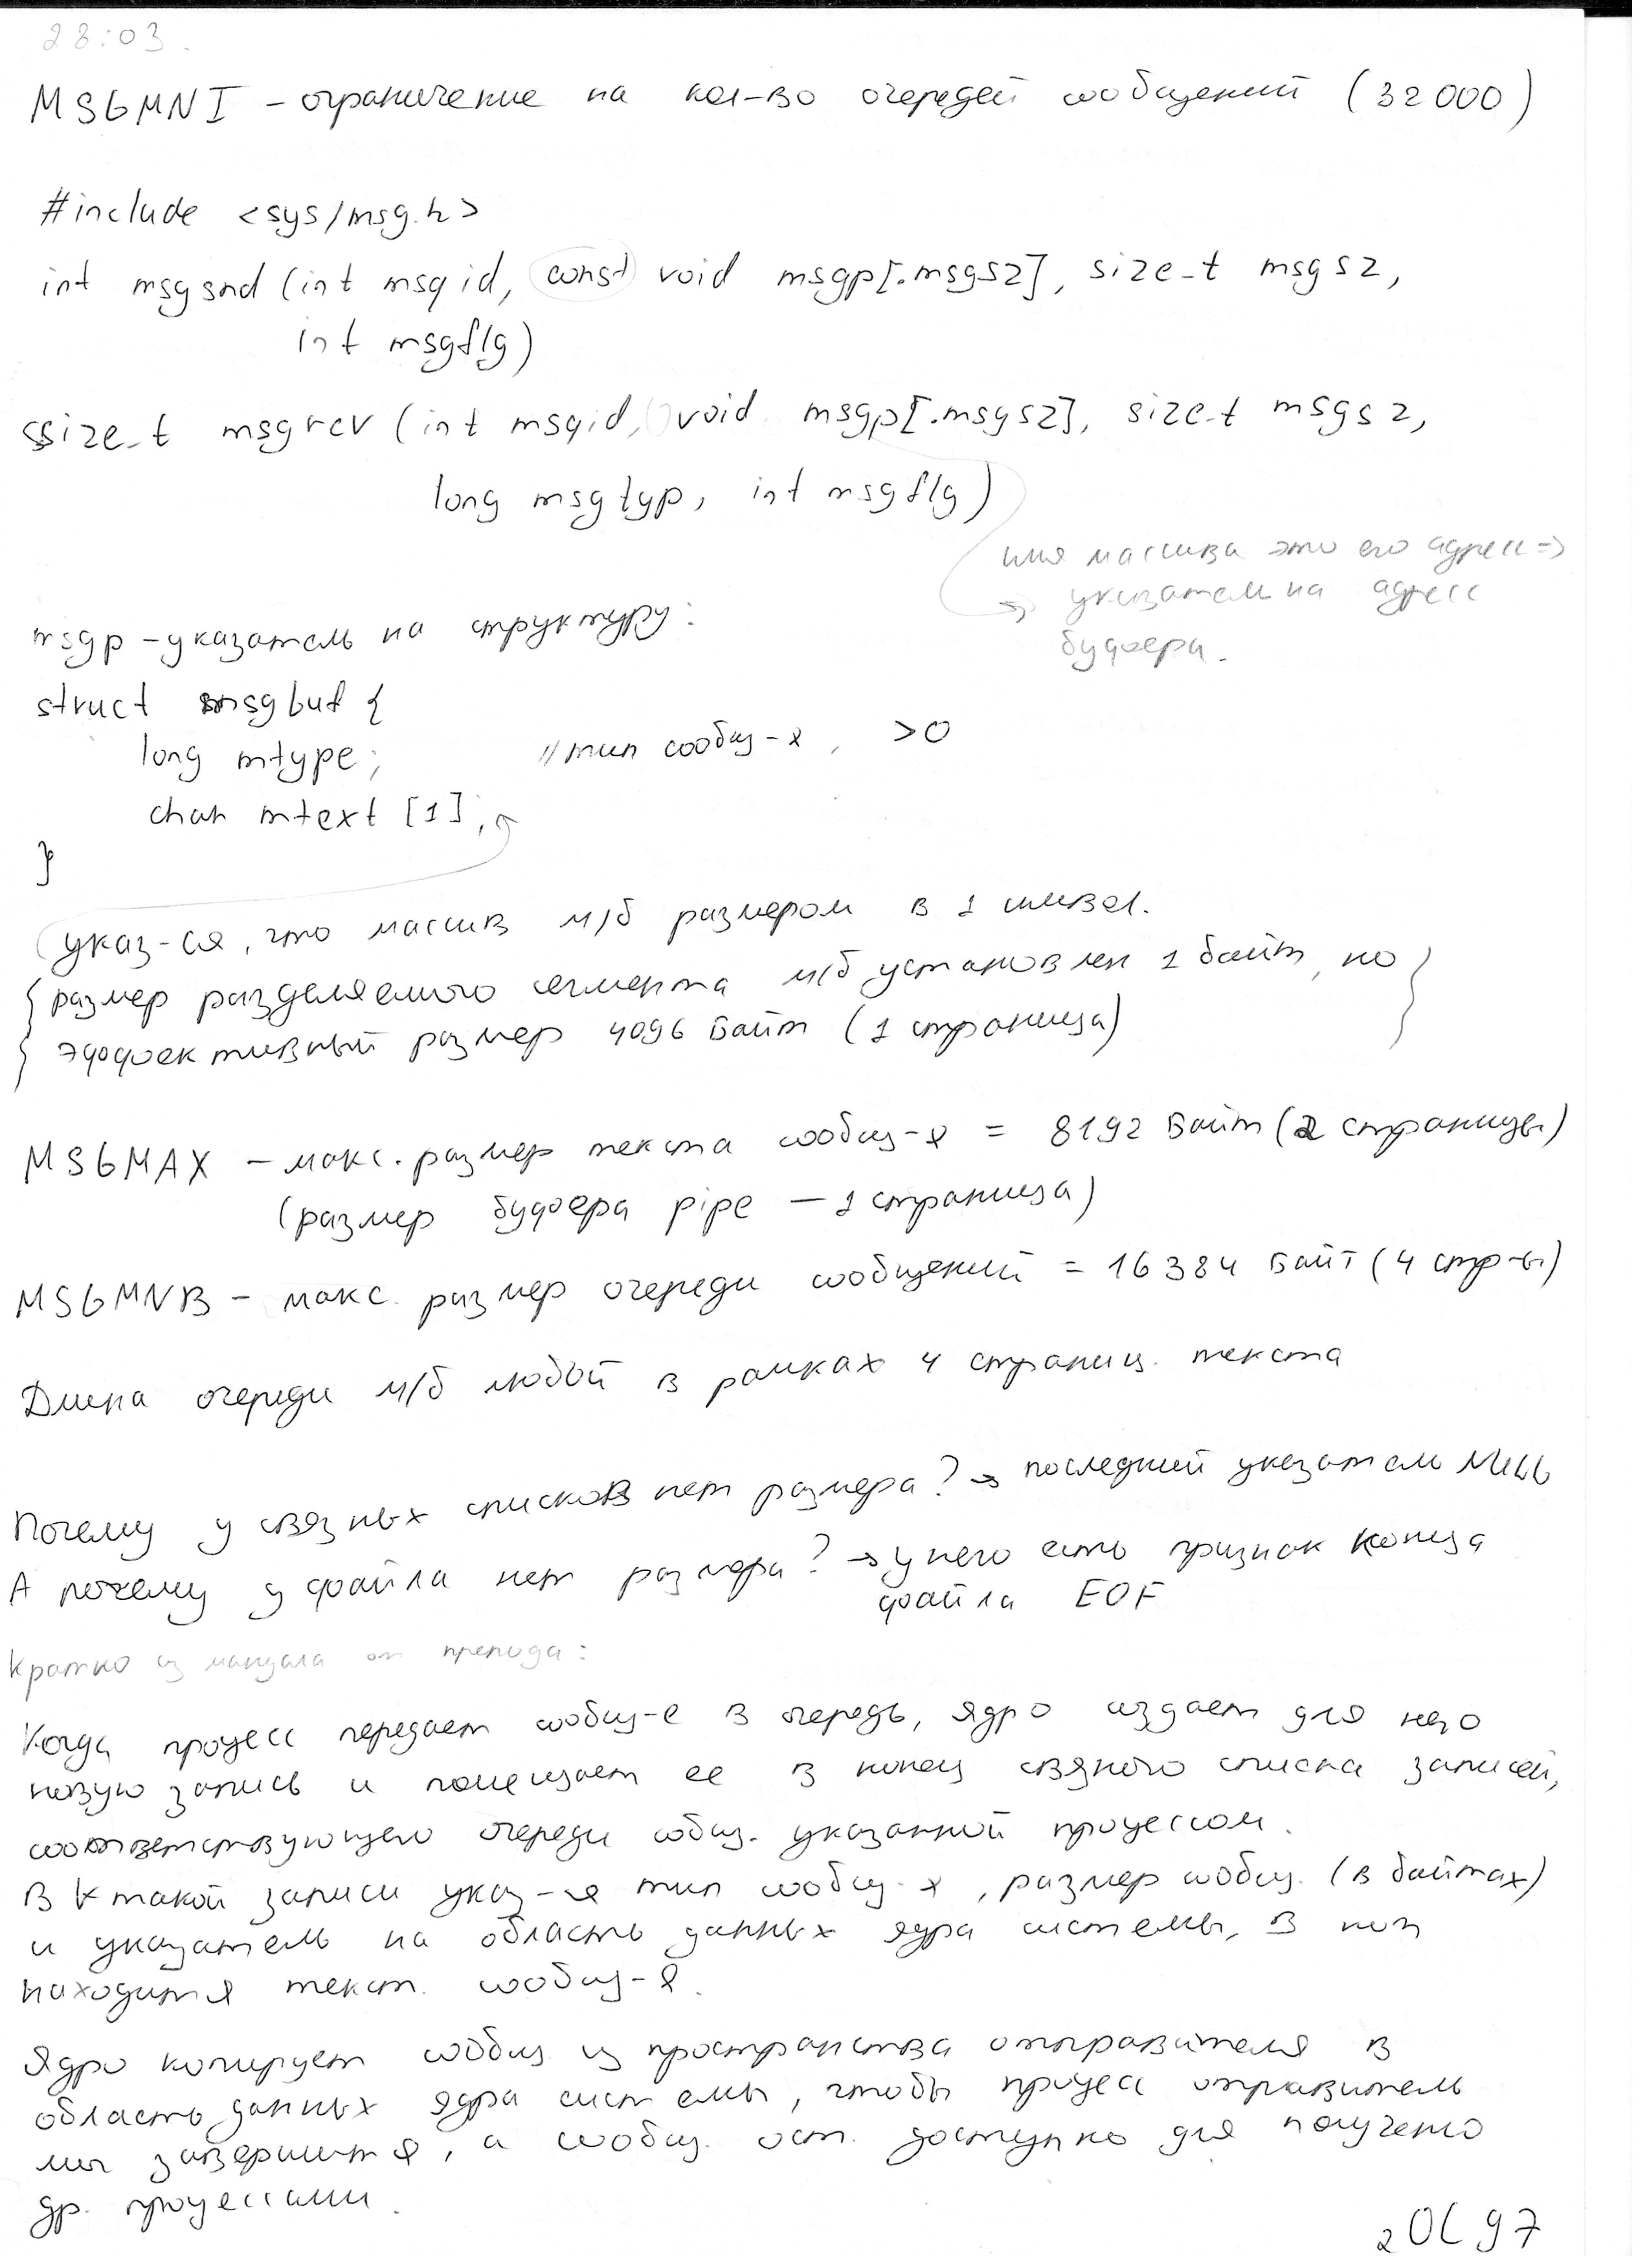 28:03.
MSGMNI – ограничение на кол-во очередей сообщений (32000)
#include <sys/msg.h>
int msgsnd (int msqid, const void msgp[.msgsz], size_t msgsz,
int msgflg)
ssize_t msgrcv (int msqid, void msgp[.msgsz], size_t msgsz,
long msgtyp, int msgflg)
имя массива это его адрес =>
=> указатель на адрес
буфера.
msgp – указатель на структуру:
struct msgbuf {
long mtype; // тип сообщ-я, >0
char mtext [1];
}
указ-ся, что массив м/б размером в 1 символ.
{ размер разделяемого сегмента м/б установлен 1 байт, но }
{ эффективный размер 4096 Байт (1 страница)
MSGMAX – макс. размер текста сообщ-я = 8192 Байт (2 страницы)
(размер буфера pipe – 1 страница)
MSGMNB – макс. размер очереди сообщений = 16384 Байт (4 стр-ы)
Длина очереди м/б любой в рамках 4 страниц. текста
Почему у связных списков нет размера? → последний указатель NULL
А почему у файла нет размера? → у него есть признак конца
файла EOF
Кратко из мануала от препода:
Когда процесс передает сообщ-е в очередь, ядро создает для него
новую запись и помещает ее в конец связного списка записей,
соответствующего очереди сообщ. указанной процессом.
В ∀ такой записи указ-ся тип сообщ-я, размер сообщ. (в байтах)
и указатель на область данных ядра системы, в кот
находится текст. сообщ-я.
Ядро копирует сообщ из пространства отправителя в
область данных ядра системы, чтобы процесс отправитель
мог завершится, а сообщ. ост. доступно для получено
др. процессами.
2 ОС 97